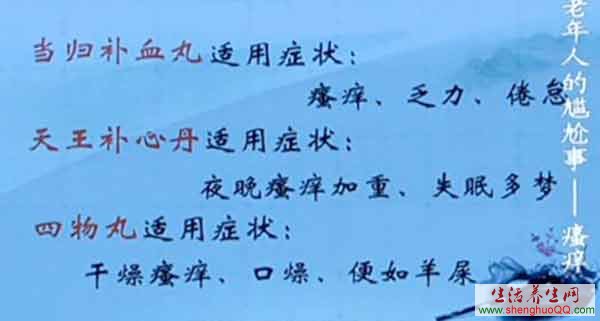 当归补血丸适用症状：
瘙痒、乏力、倦怠
天王补心丹适用症状：
夜晚瘙痒加重、失眠多梦
四物丸适用症状：
干燥瘙痒、口燥、便如羊屎
老年人的尴尬事——瘙痒
生活养生网
www.shenghuoQQ.com